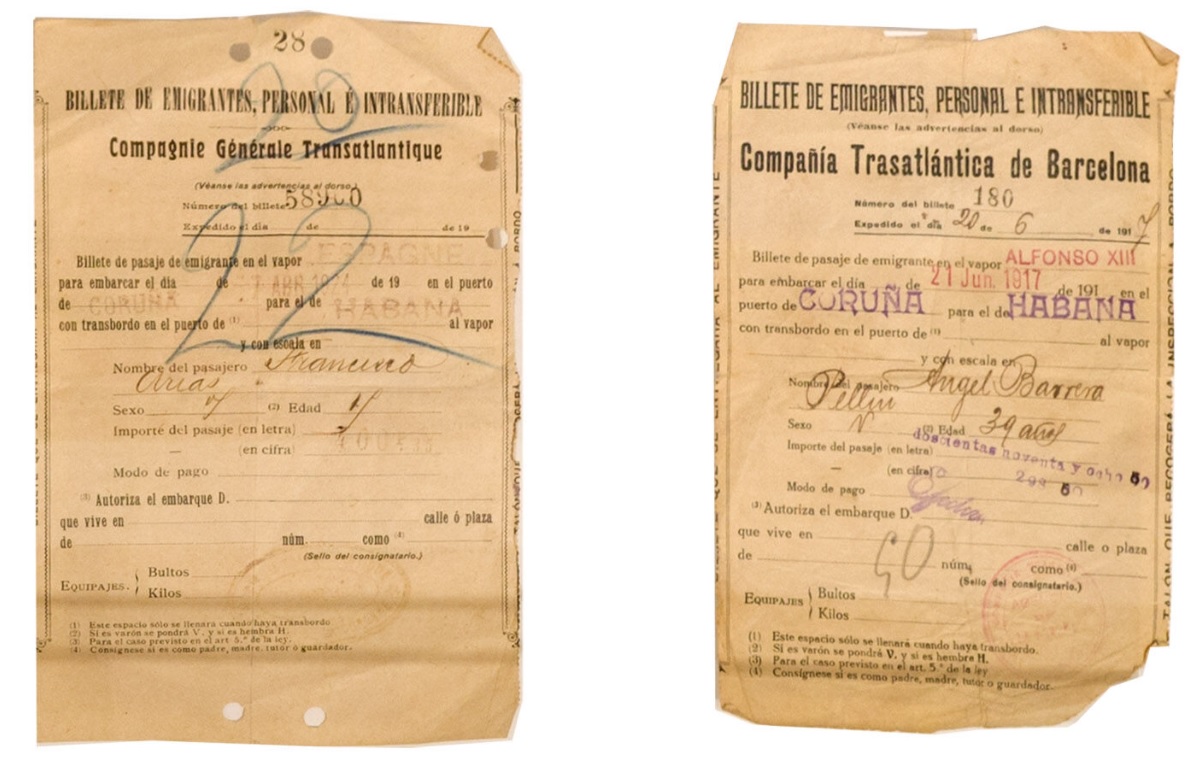 28
20
BILLETE DE EMIGRANTES, PERSONAL É INTRANSFERIBLE
Compagnie Générale Transatlantique
(Véanse las advertencias al dorso.)
Número del billete
Expedido el día de de 19
22
Billete de pasaje de emigrante en el vapor ESPAGNE
para embarcar el día de ABR de 19 en el puerto
de CORUÑA para el de HABANA
con transbordo en el puerto de (1) al vapor
y con escala en
Nombre del pasajero Francisco
Arias
Sexo (2) Edad
Importe del pasaje (en letra)
— (en cifra)
Modo de pago
(3) Autoriza el embarque D.
que vive en calle ó plaza
de núm. como (4)
(Sello del consignatario.)
EQUIPAJES. Bultos
Kilos
(1) Este espacio sólo se llenará cuando haya transbordo
(2) Si es varón se pondrá V. y si es hembra H.
(3) Para el caso previsto en el art. 5.º de la ley.
(4) Consígnese si es como padre, madre, tutor ó guardador.
BILLETE DE EMIGRANTES, PERSONAL E INTRANSFERIBLE
(Véanse las advertencias al dorso)
Compañía Trasatlántica de Barcelona
Número del billete 180
Expedido el día 20 de 6 de 1917
Billete de pasaje de emigrante en el vapor ALFONSO XIII
para embarcar el día de 21 Jun. 1917 de 191 en el
puerto de CORUÑA para el de HABANA
con transbordo en el puerto de (1) al vapor
y con escala en
Nombre del pasajero Angel Barrera
Pellin
Sexo V (2) Edad 39 años
Importe del pasaje (en letra) doscientas noventa y ocho 50
— (en cifra) 298 50
Modo de pago
(3) Autoriza el embarque D.
que vive en calle o plaza
de núm. como (4)
(Sello del consignatario.)
EQUIPAJES Bultos
Kilos
(1) Este espacio sólo se llenará cuando haya transbordo.
(2) Si es varón se pondrá V. y si es hembra H.
(3) Para el caso previsto en el art. 5.º de la ley
(4) Consígnese si es como padre, madre, tutor o guardador.
TALÓN QUE RECOGERÁ LA INSPECCIÓN A BORDO